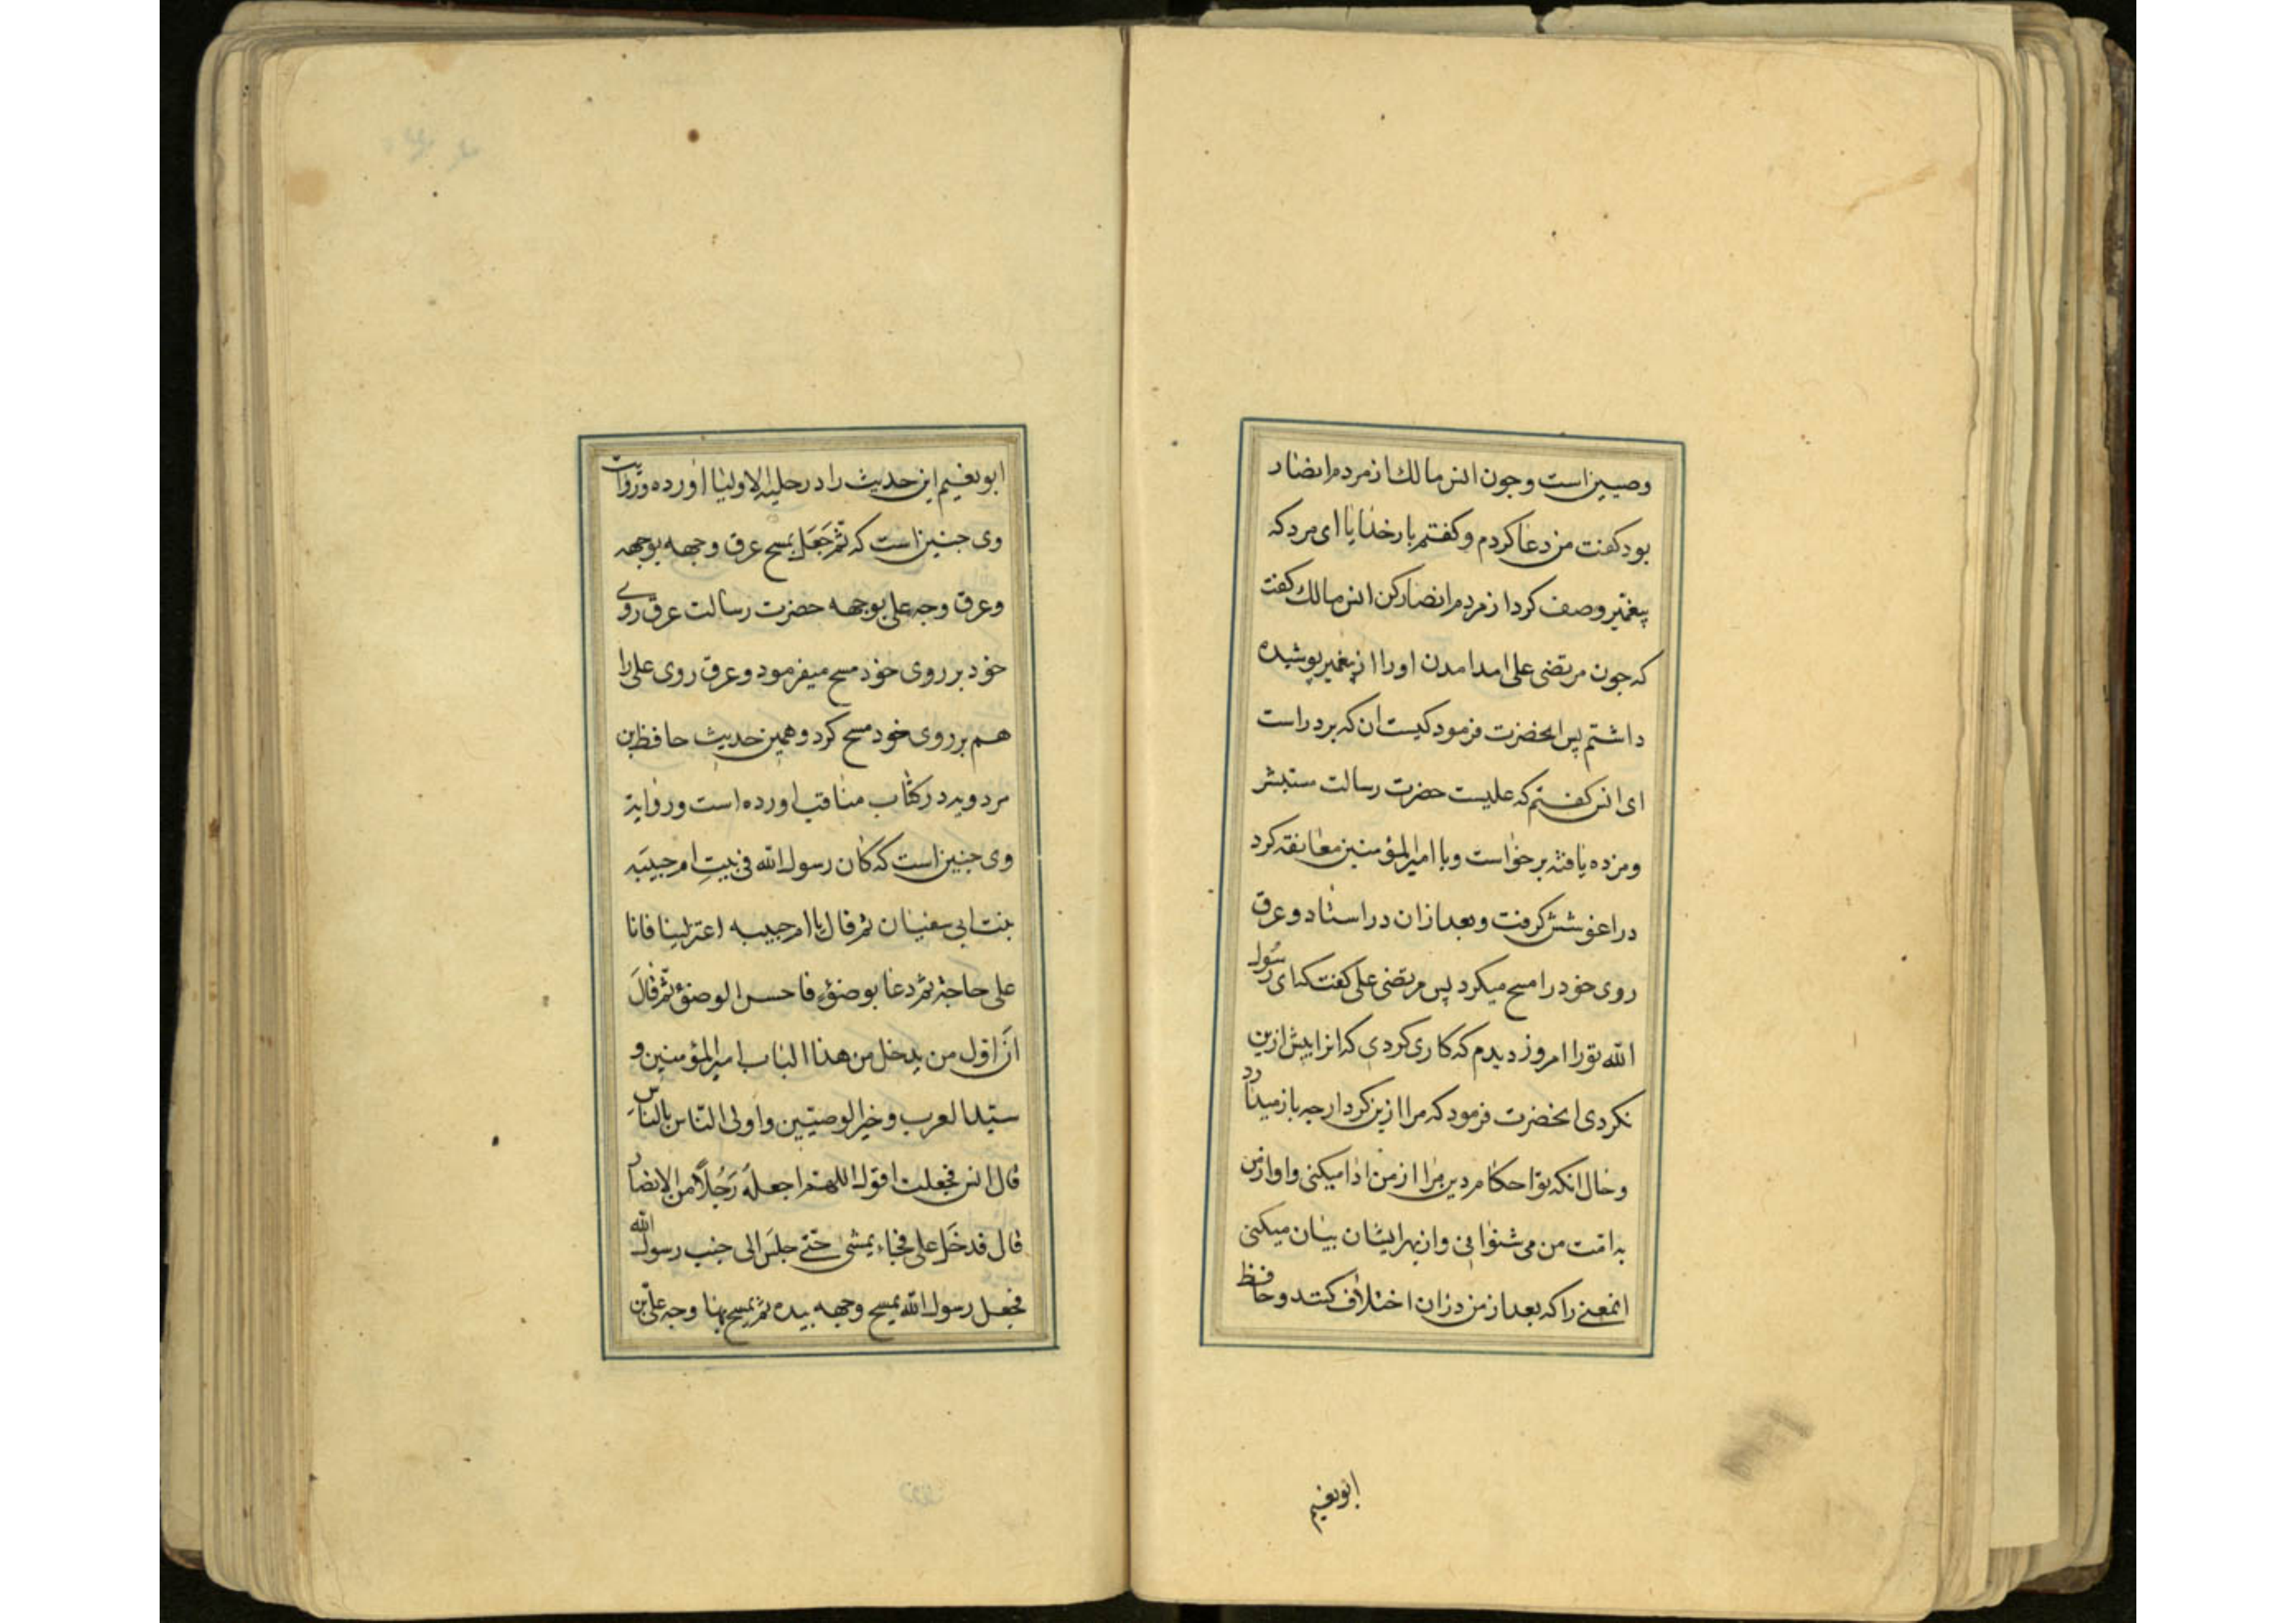 وصیین است و چون انس مالک از مردم انصار
بود کفت من دعا کردم و کفتم بار خدایا ای مرد که
پیغمبر وصف کرد از مردم انصار کن انس مالک کفت
که جون مرتضی علی امد امدن او را از پیغمبر پوشیده
داشتم پس انحضرت فرمود کیست ان که بر در است
ای انس کفتم که علیست حضرت رسالت مستبشر
و مزده یافته برخواست و با امیرالمؤمنین معانقه کرد
در اغوشش کرفت و بعد از ان در استاد و عرق
روی خود را مسح میکرد پس مرتضی علی کفت که ای رسول
الله تو را امروز دیدم که کاری کردی که انرا پیش ازین
نکردی انحضرت فرمود که مرا ازین کردار چه باز میدارد
و حال انکه تو احکام دین مرا از من ادا میکنی و اواز من
به امت من می شنوانی و از بهر ایشان بیان میکنی
انمعنی را که بعد از من در ان اختلاف کنند و حافظ
ابونعیم
ابونعیم این حدیث را در حلیه الاولیا اورده و روایت
وی جنین است که ثم جَعَل یمسح عرق وجهه بوجهه
و عرق وجه علی بوجهه حضرت رسالت عرق روی
خود بر روی خود مسح میفرمود و عرق روی علی را
هم بر روی خود مسح کرد و همین حدیث حافظ بن
مردویه در کتاب مناقب اورده است و روایة
وی جنین است که کان رسول الله فی بیتِ ام حبیبَه
بنت ابی سفیان ثم قال یا ام حبیبه اعتزلینا فانا
علی حاجة ثم دعا بوضوء فاحسن الوضوء ثم قالَ
انّ اوّل من یدخل من هذا الباب امیرالمؤمنین و
سیّد العرب و خیر الوصیّین و اولی النّاس بالناسِ
قال انس فجعلت اقول اللهم اجعله رَجُلاً من الانصار
قال فدخَل علی فجاء یمشی حتّی جلسَ الی جنب رسول الله
فجعل رسول الله یمسح وجهه بیده ثم یمسح بها وجه علی بن